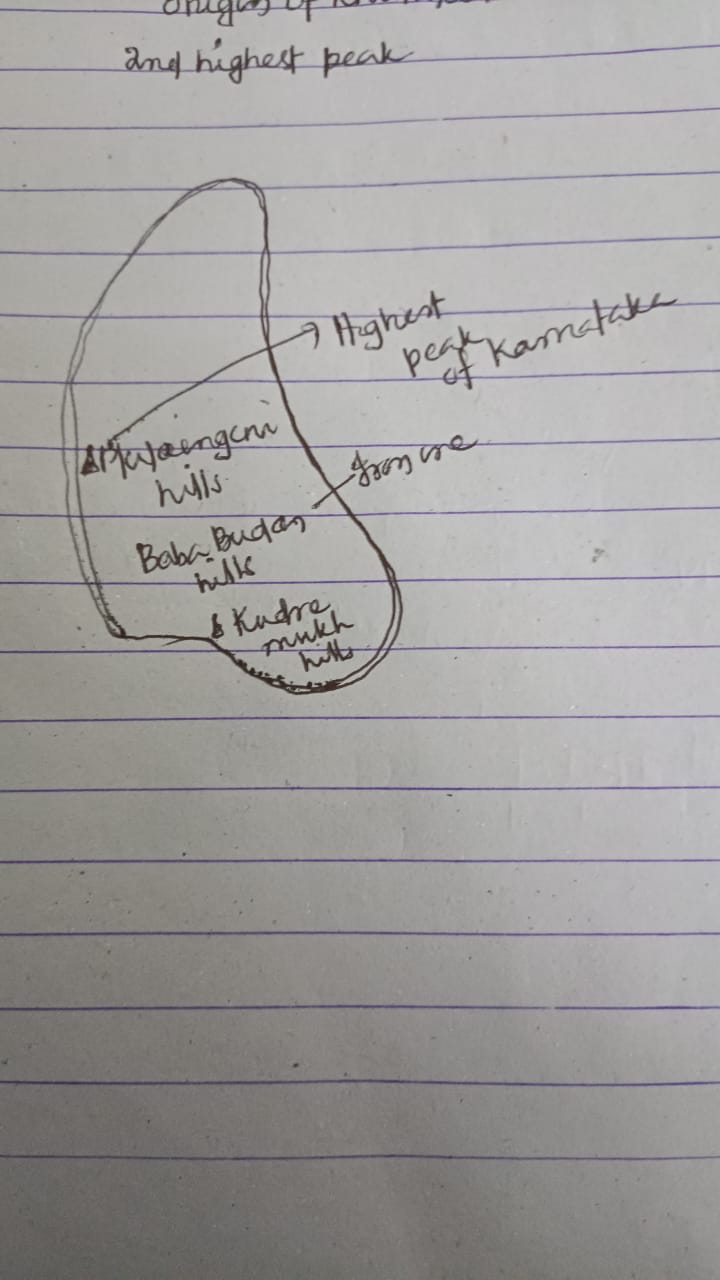 origin of
2nd highest peak
Highest
peak
of Karnataka
Mulaengeni
hills
Iron ore
Baba Budan
hills
Kudre
mukh
hills